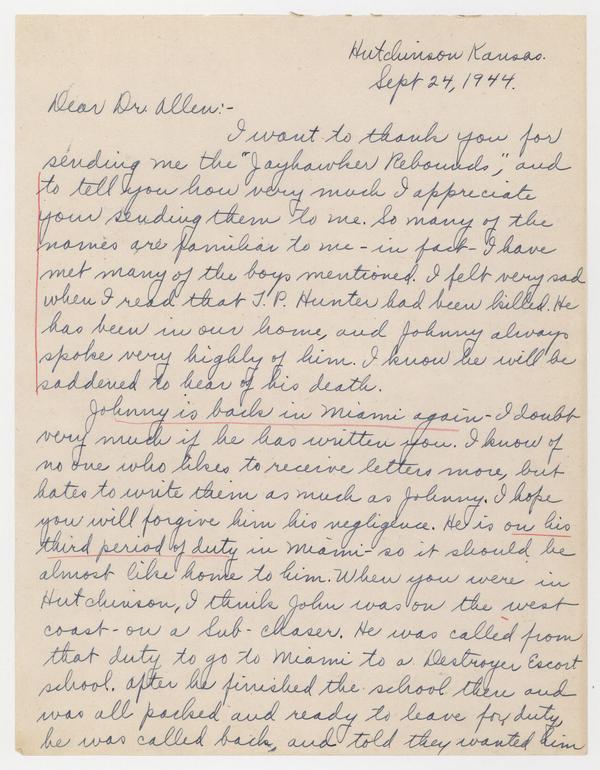 Hutchinson Kansas.
Sept 24, 1944.
Dear Dr. Allen:-
I want to thank you for
sending me the "Jayhawker Rebounds", and
to tell you how very much I appreciate
your sending them to me. So many of the
names are familiar to me - in fact - I have
met many of the boys mentioned. I felt very sad
when I read that T.P. Hunter had been killed. He
has been in our home, and Johnny always
spoke very highly of him. I know he will be
saddened to hear of his death.
Johnny is back in Miami again - I doubt
very much if he has written you. I know of
no one who likes to receive letters more, but
hates to write them as much as Johnny. I hope
you will forgive him his negligence. He is on his
third period of duty in Miami - so it should be
almost like home to him. When you were in
Hutchinson, I think John was on the west
coast - on a Sub-chaser. He was called from
that duty to go to Miami to a Destroyer Escort
school. After he finished the school there and
was all packed and ready to leave for duty,
he was called back, and told they wanted him